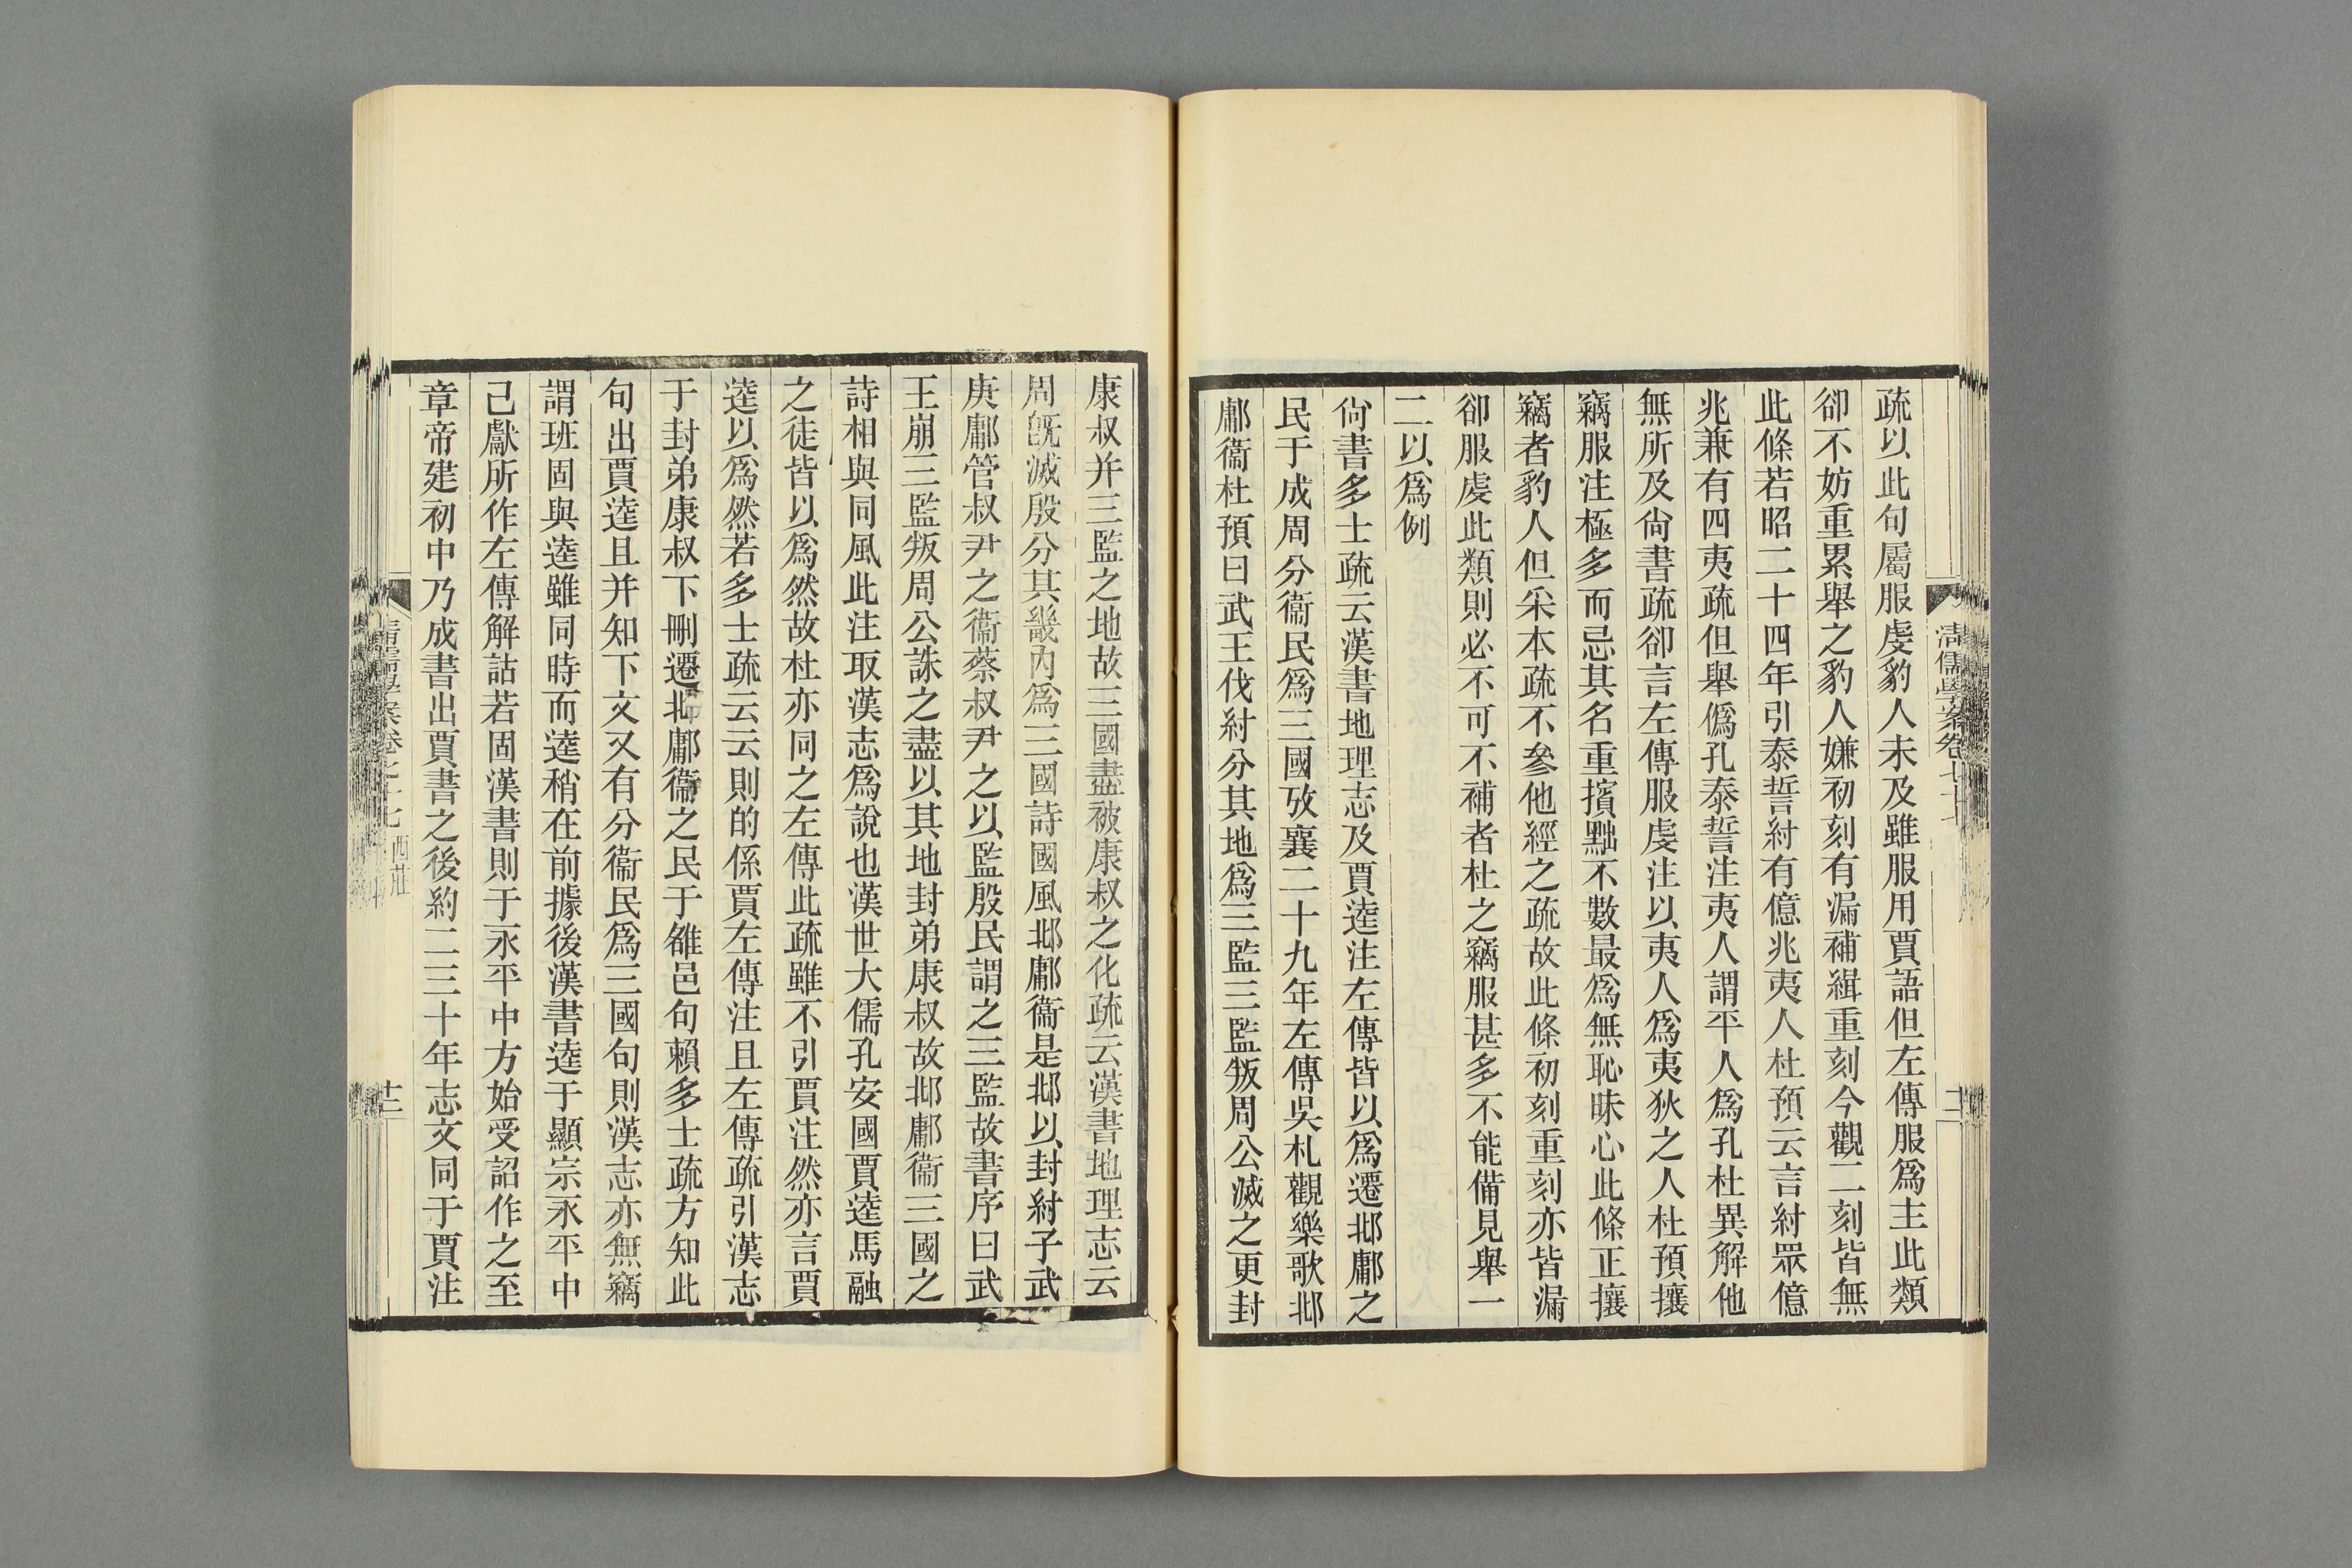 疏以此句屬服虔豹人未及雖服用賈語但左傳服爲主此類
卻不妨重累舉之豹人嫌初刻有漏補緝重刻今觀二刻皆無
此條若昭二十四年引泰誓紂有億兆夷人杜預云言紂眾億
兆兼有四夷疏但舉僞孔泰誓注夷人謂平人爲孔杜異解他
無所及尙書疏卻言左傳服虔注以夷人爲夷狄之人杜預攘
竊服注極多而忌其名重擯黜不數最爲無恥昧心此條正攘
竊者豹人但采本疏不參他經之疏故此條初刻重刻亦皆漏
卻服虔此類則必不可不補者杜之竊服甚多不能備見舉一
二以爲例
尙書多士疏云漢書地理志及賈逵注左傳皆以爲遷邶鄘之
民于成周分衞民爲三國攷襄二十九年左傳吳札觀樂歌邶
鄘衞杜預曰武王伐紂分其地爲三監三監叛周公滅之更封
康叔并三監之地故三國盡被康叔之化疏云漢書地理志云
周旣滅殷分其畿內爲三國詩國風邶鄘衞是邶以封紂子武
庚鄘管叔尹之衞蔡叔尹之以監殷民謂之三監故書序曰武
王崩三監叛周公誅之盡以其地封弟康叔故邶鄘衞三國之
詩相與同風此注取漢志爲說也漢世大儒孔安國賈逵馬融
之徒皆以爲然故杜亦同之左傳此疏雖不引賈注然亦言賈
逵以爲然若多士疏云云則的係賈左傳注且左傳疏引漢志
于封弟康叔下刪遷邶鄘衞之民于雒邑句賴多士疏方知此
句出賈逵且并知下文又有分衞民爲三國句則漢志亦無竊
謂班固與逵雖同時而逵稍在前據後漢書逵于顯宗永平中
己獻所作左傳解詁若固漢書則于永平中方始受詔作之至
章帝建初中乃成書出賈書之後約二三十年志文同于賈注
清儒學案卷七十七
西莊